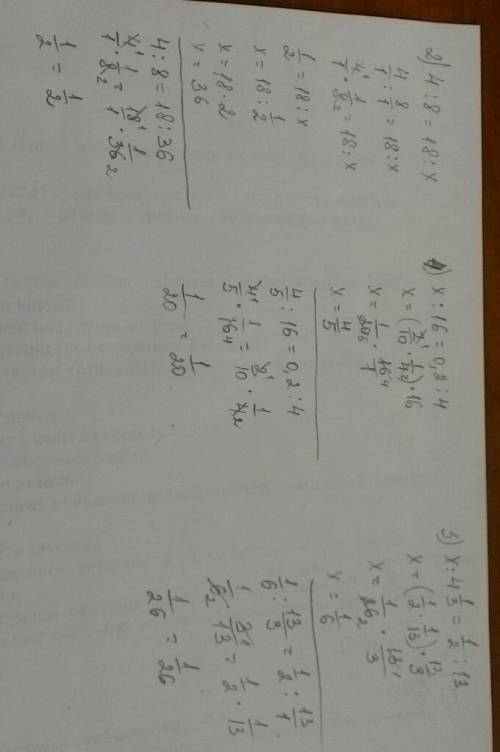 2) 4 : 8 = 18 : x
4/1 : 8/1 = 18 : x
4¹/1 · 1/8₂ = 18 : x
1/2 = 18 : x
x = 18 : 1/2
x = 18 · 2
x = 36
4 : 8 = 18 : 36
4¹/1 · 1/8₂ = 18¹/1 · 1/36₂
1/2 = 1/2
1) x : 16 = 0,2 : 4
x = (2¹/10 · 1/4₂) · 16
x = 1/20₅ · 16⁴/1
x = 4/5
4/5 : 16 = 0,2 : 4
4¹/5 · 1/16₄ = 2¹/10 · 1/4₂
1/20 = 1/20
3) x : 4 1/3 = 1/2 : 13
x = (1/2 · 1/13) · 13/3
x = 1/26₂ · 13¹/3
x = 1/6
1/6 : 13/3 = 1/2 : 13/1
1/6₂ · 3¹/13 = 1/2 · 1/13
1/26 = 1/26